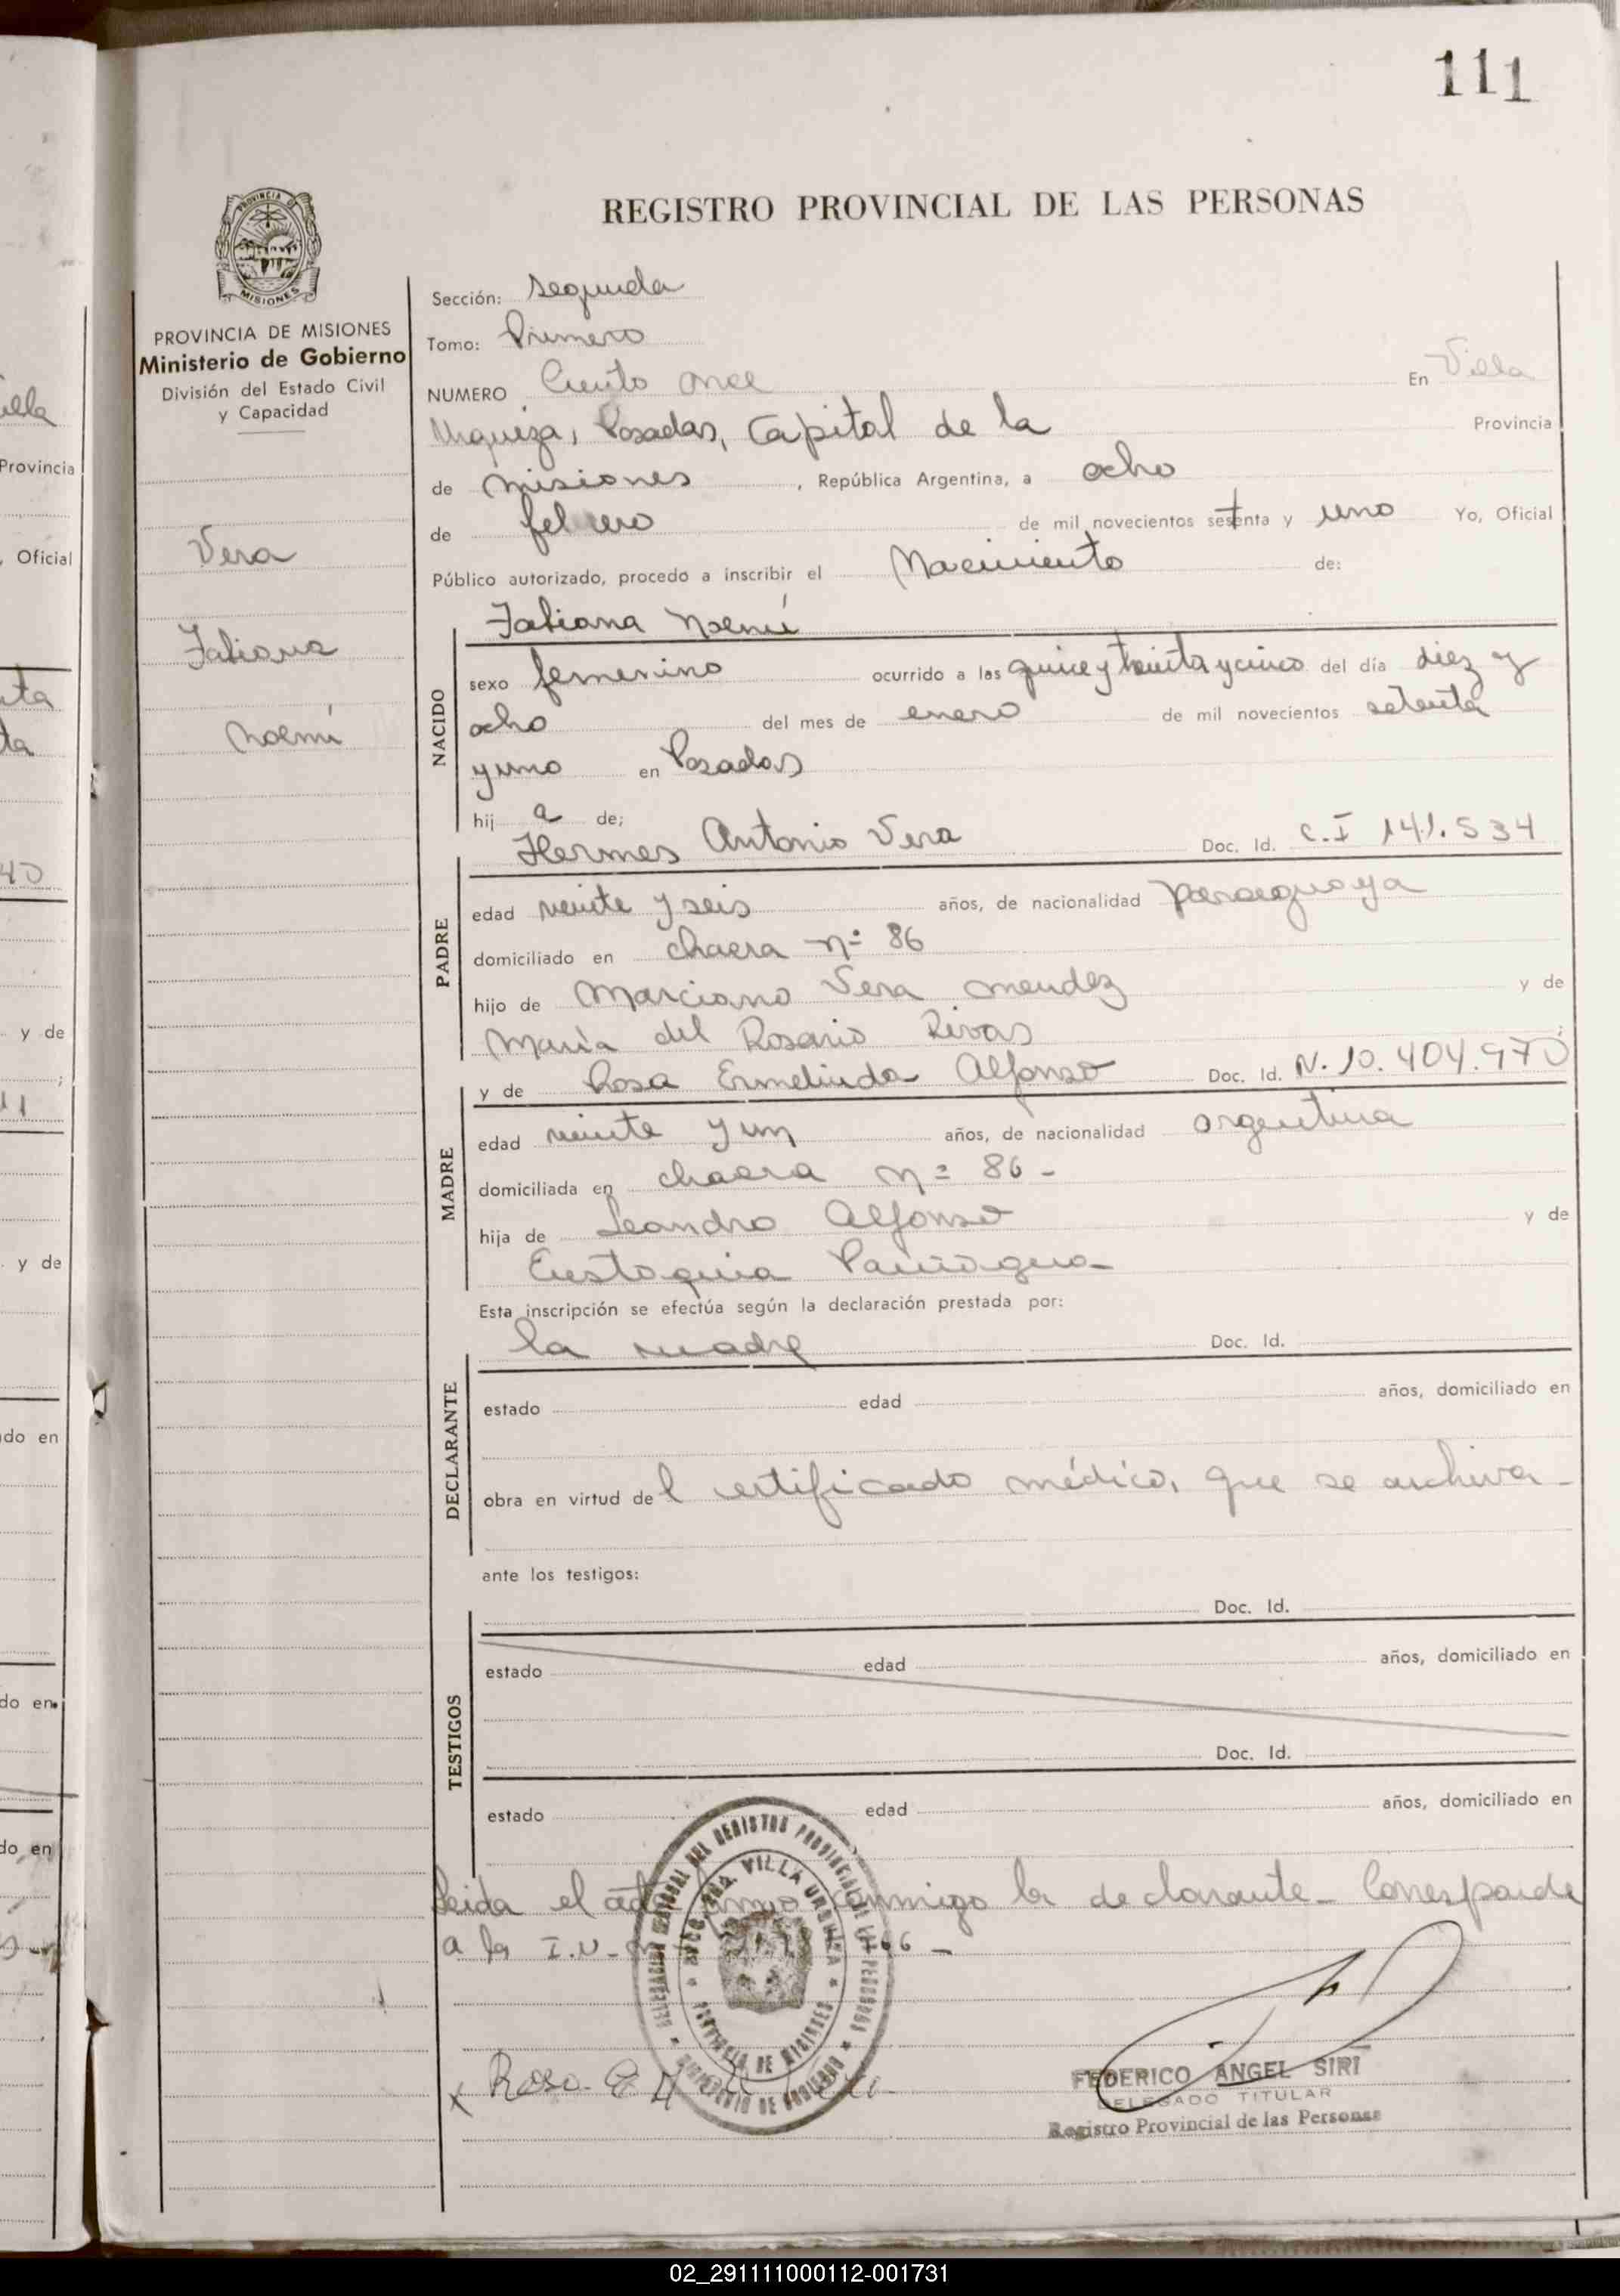 111
REGISTRO PROVINCIAL DE LAS PERSONAS
PROVINCIA DE MISIONES
Ministerio de Gobierno
División del Estado Civil
y Capacidad
Vera
Fabiana
Noemí
Sección: segunda
Tomo: Primero
NUMERO Ciento once En Villa
Urquiza, Posadas, Capital de la Provincia
de misiones, República Argentina, a ocho
de febrero de mil novecientos setenta y uno Yo, Oficial
Público autorizado, procedo a inscribir el Nacimiento de:
Fabiana Noemí
NACIDO
sexo femenino ocurrido a las quince y treinta y cinco del día diez y
ocho del mes de enero de mil novecientos setenta
y uno en Posadas
hij a de;
Hermes Antonio Vera Doc. Id. C.I 141.534
PADRE
edad veinte y seis años, de nacionalidad paraguaya
domiciliado en chacra nº 86
hijo de Marciano Vera Mendez y de
María del Rosario Rivas ;
y de Rosa Ermelinda Alfonso Doc. Id. N. 10.404.970
MADRE
edad veinte y un años, de nacionalidad argentina
domiciliada en chacra nº 86 -
hija de Leandro Alfonso y de
Eustaquia Paniagua
Esta inscripción se efectúa según la declaración prestada por:
la madre Doc. Id.
DECLARANTE
estado edad años, domiciliado en
obra en virtud del certificado médico, que se archiva -
ante los testigos:
Doc. Id.
TESTIGOS
estado edad años, domiciliado en
Doc. Id.
estado edad años, domiciliado en
Leida el acta firma conmigo la declarante - Corresponde
a la I.U. 466 -
DELEGACION SECCIONAL DEL REGISTRO PROVINCIAL DE LAS PERSONAS
MINISTERIO DE GOBIERNO
VILLA URQUIZA
PROVINCIA DE MISIONES
x Rosa E
FEDERICO ANGEL SIRI
DELEGADO TITULAR
Registro Provincial de las Personas
02_291111000112-001731